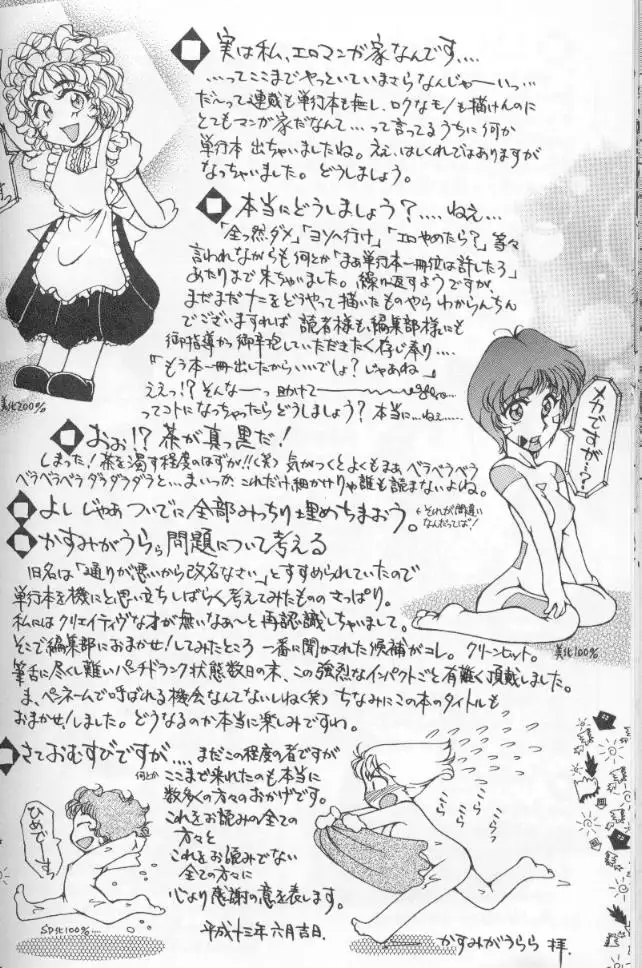 実は私、エロマンガ家なんです....
...ってここまでやっといていまさらなんじゃーいっ...
だ〜って連載も単行本も無し、ロクなモノも描けんのに
とてもマンガ家だなんて...って言ってるうちに何か
単行本 出ちゃいましたね。ええ、はしくれではありますが
なっちゃいました。どうしましょう。
本当にどうしましょう?....ねえ...
「全っ然ダメ」「ヨソへ行け」「エロやめたら?」等々
言われながらも何とか「まあ単行本一冊位は許したろ」
あたりまで来ちゃいました。繰り返すようですが、
まだまだナニをどうやって描いたものやら わからんちん
でございますれば 読者様も編集部様にも
御指導かつ御辛抱していただきたく存じ奉り....
「もう本一冊出したからいいでしょ?じゃあね」
ええっ!?そんなーっ助けて
ってコトになっちゃったらどうしましょう?本当に...ねえ......
美化200%
メカですが...?
おぉ!?茶が真っ黒だ!
しまった!茶を濁す程度のはずが!!(笑) 気がつくとよくもまあ、ベラベラベラ
ベラベラベラダラダラダラと...まいっか、これだけ細かけりゃ誰も読まないよね。
よし じゃあついでに全部みっちり埋めちまおう。
←それが間違い
なんだってば!
かすみがうらら問題について考える
旧名は「通りが悪いから改名なさい」とすすめられていたので
単行本を機にと思い立ちしばらく考えてみたもののさっぱり。
私にはクリエイティヴな才が無いなあ〜と再認識しちゃいまして。
そこで編集部におまかせ!してみたところ 一番に聞かされた候補がコレ。クリーンヒット。
筆舌に尽くし難いパンチドランク状態数日の末、この強烈なインパクトごと有難く頂戴しました。
ま、ペンネームで呼ばれる機会なんてないしね(笑) ちなみにこの本のタイトルも
おまかせ!しました。どうなるのか本当に楽しみですわ。
美化100%
さておむすびですが....まだこの程度の者ですが
何とか ここまで来れたのも本当に
数多くの方々のおかげです。
これをお読みの全ての
方々と
これをお読みでない
全ての方々に
心より感謝の意を表します。
平成十三年六月吉日.
かすみがうらら 拝.
ひめです。
SD化100%....
うらうら